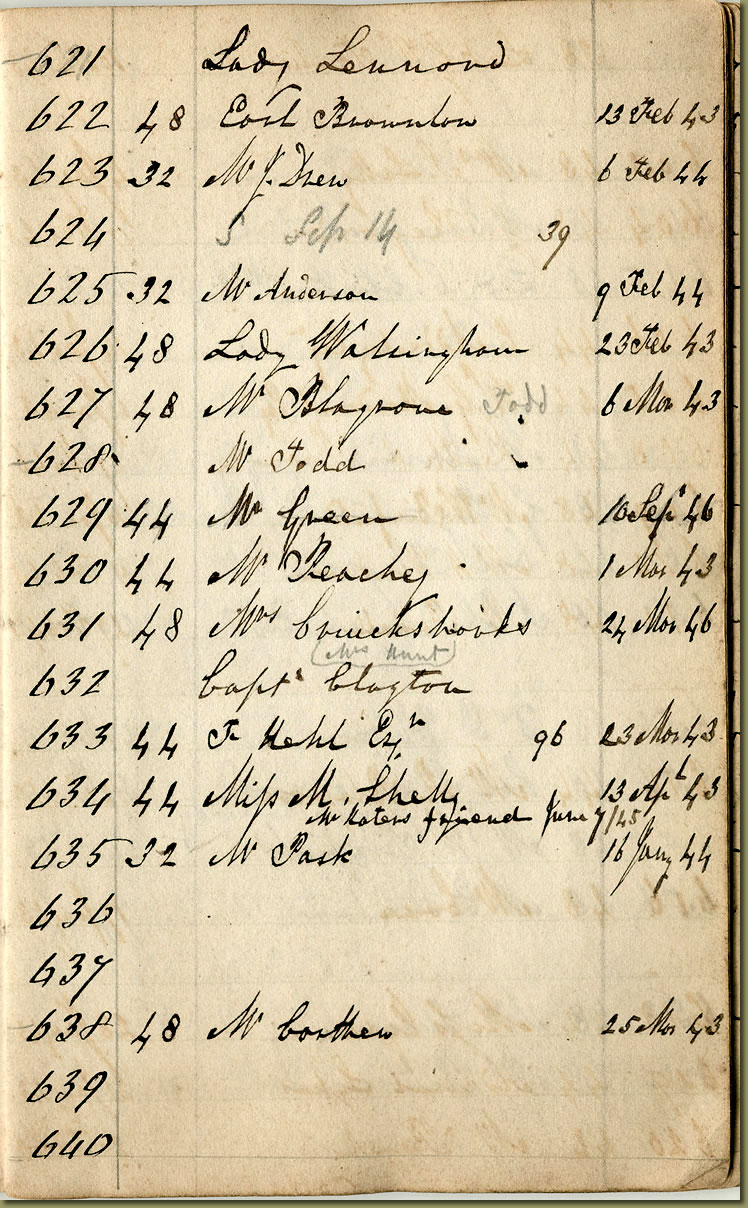 621 Lady Lennord
622 48 Earl Brownlow 13 Feb 43
623 32 Mr J. Drew 6 Feb 44
624 S Sep 14 39
625 32 Mr Anderson 9 Feb 44
626 48 Lady Walsingham 23 Feb 43
627 48 Mr Blagrove Todd 6 Mar 43
628 Mr Todd
629 44 Mr Green 10 Sepr 46
630 44 Mr Peachey 1 Mar 43
631 48 Mrs Cruickshanks 24 Mar 46
(Mrs Hunt)
632 Capt Clayton
633 44 Esqr 96 23 Mar 43
634 44 Miss M. Shelly 13 Apl 43
Mr Katers friend June 7/45
635 32 Mr Pask 16 Jany 44
636
637
638 48 Mr Carthew 25 Mar 43
639
640